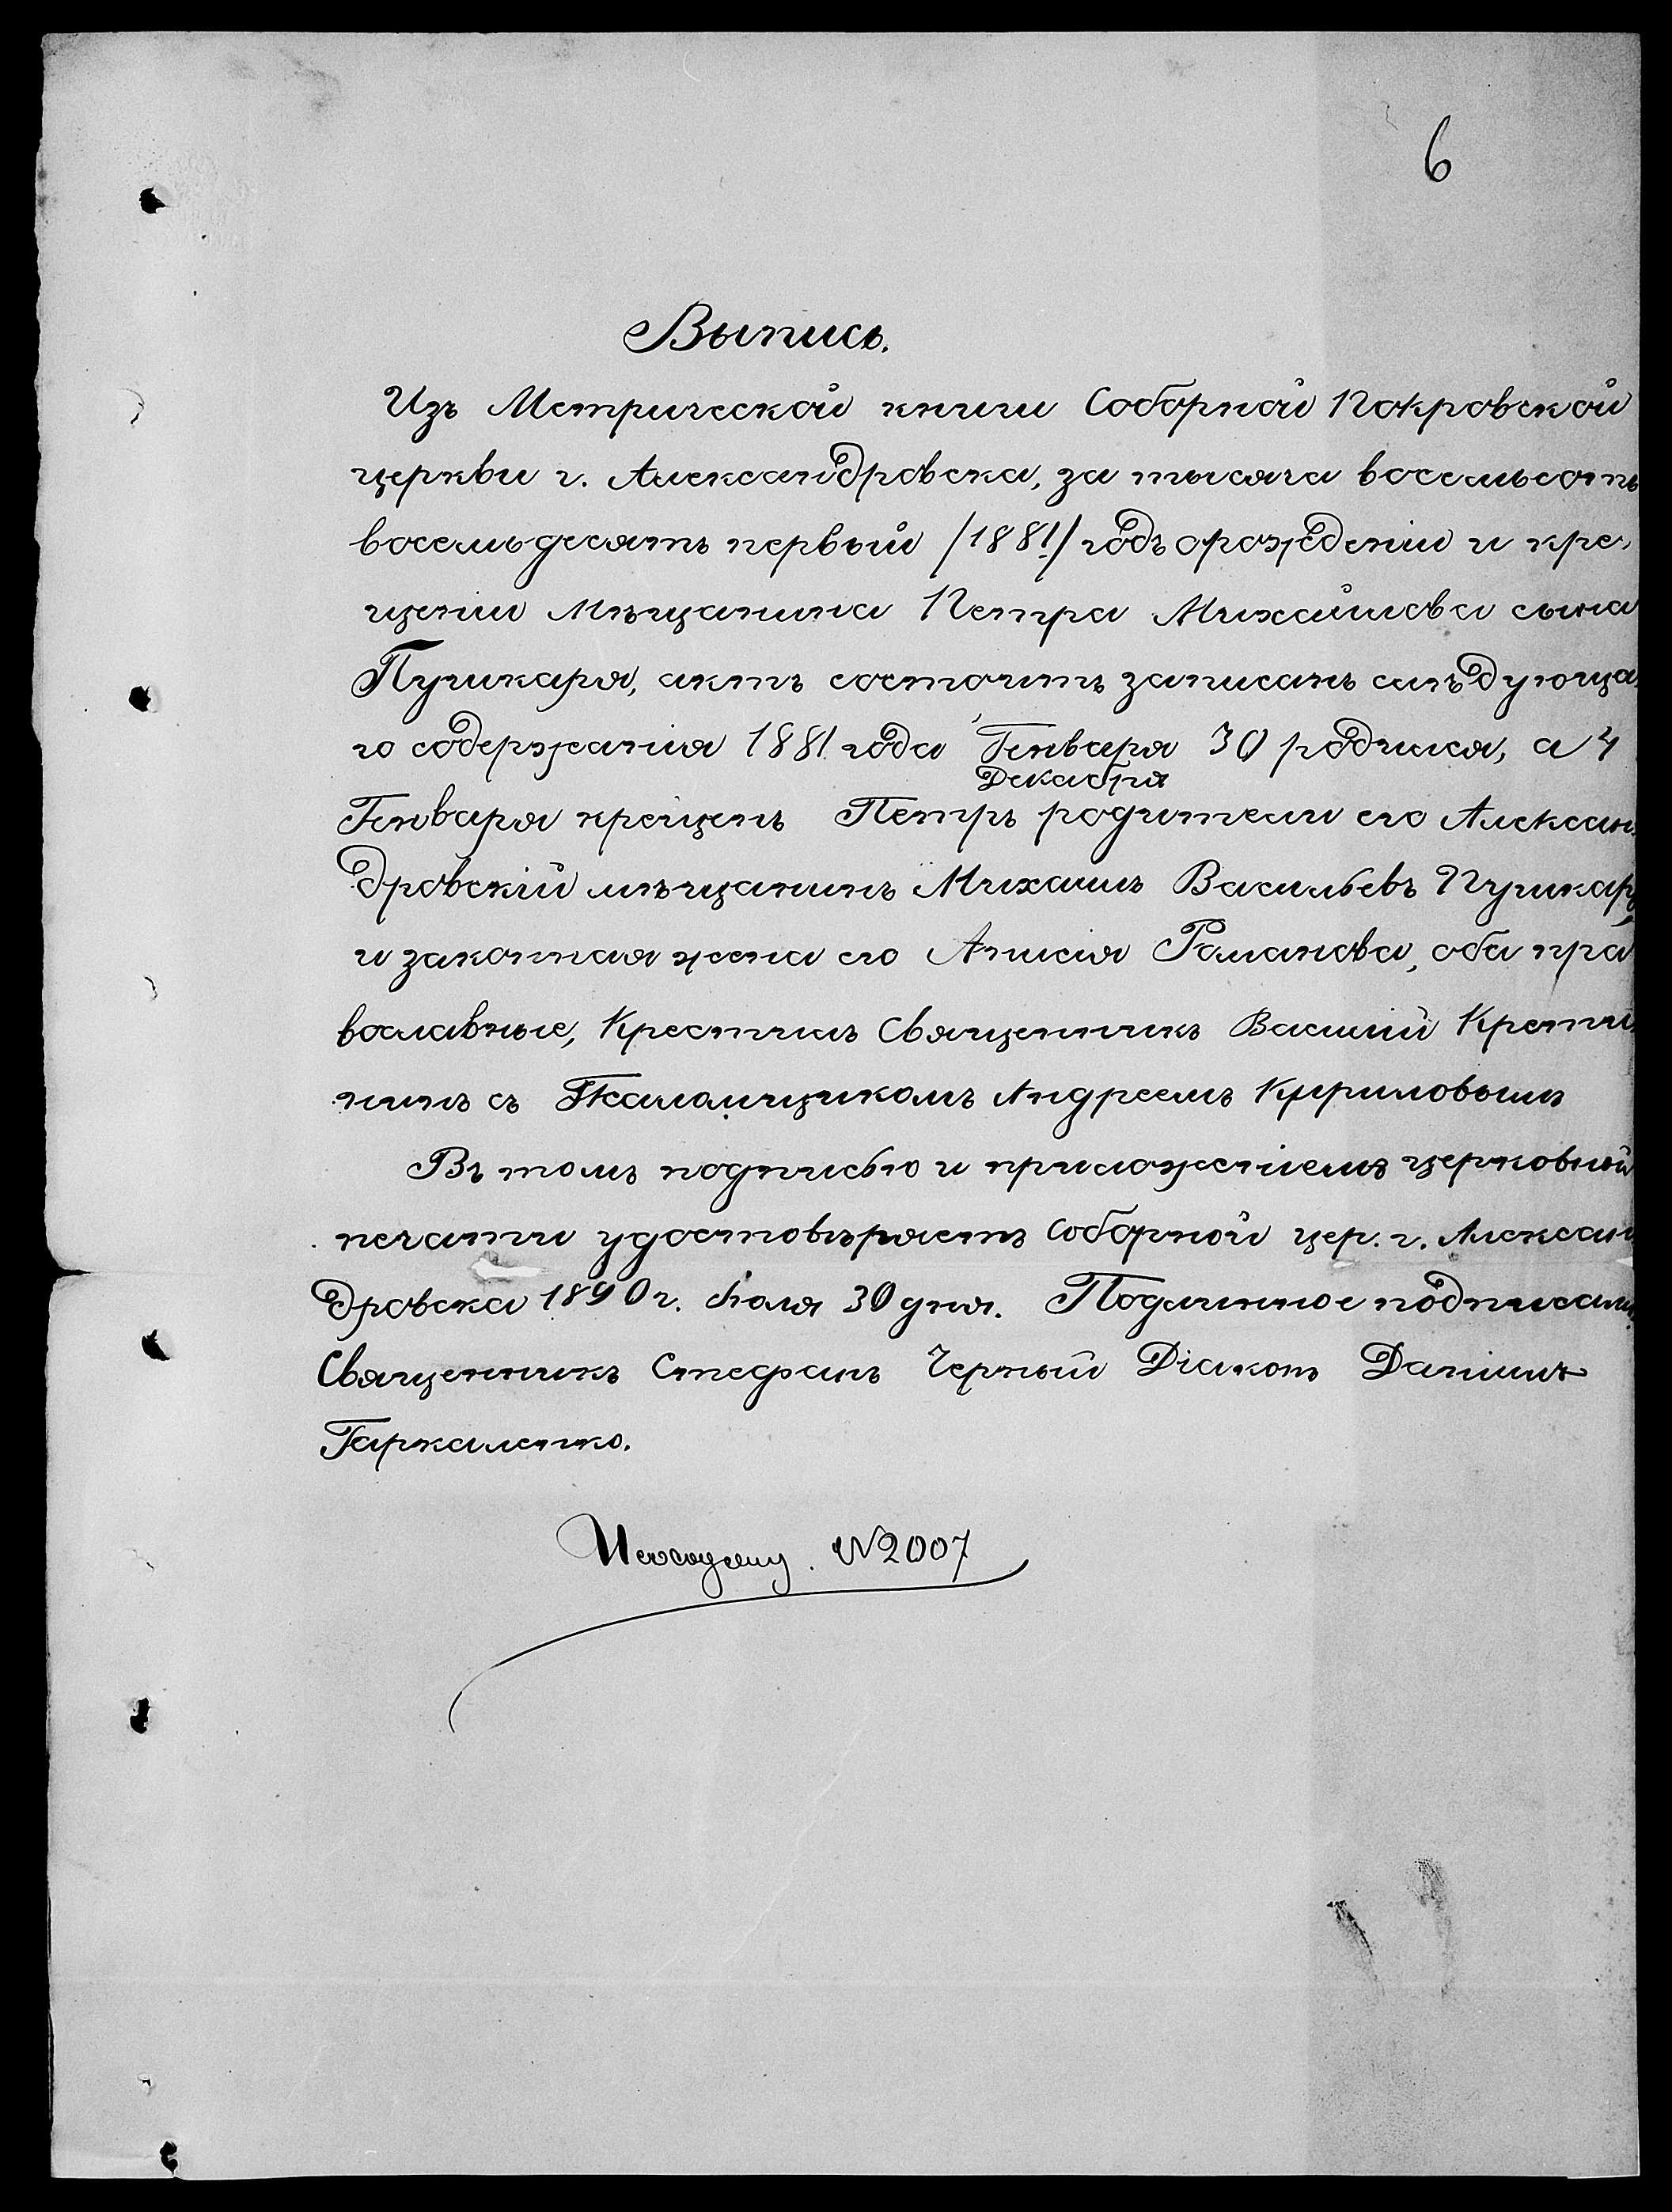 6
Выпись.
Изъ Метрической книги Соборной Покровской
церкви г. Александровска, за тысяча восемьсотъ
восемьдесятъ первый /1881/ годъ о рожденіи и кре-
щеніи Мѣщанина Петра Михайлова сына
Пушкаря, актъ состоитъ записанъ слѣдующа-
го содержанія 1881 года Генваря 30 родился, а 4
Декабря
Генваря крещенъ Петръ родители его Алексан-
дровскій мѣщанинъ Михаилъ Васильевъ Пушкарь
и законная жена его Анисія Романова, оба пра
вославные, Крестилъ Священникъ Василій
съ Псаломщикомъ Андреемъ Кириловымъ
Въ томъ подписью и приложеніемъ церковной
печати удостовѣряетъ Соборной цер. г. Алексан
дровска 1890 г. Іюля 30 дня. Подлинное подписали
Священникъ Стефанъ Черный Діаконъ Даніилъ
Гаркаленко.
№ 2007